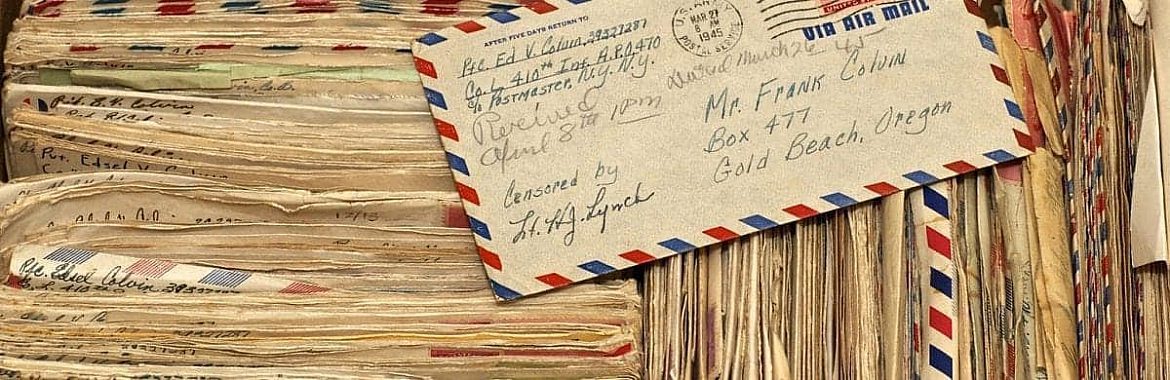 AFTER FIVE DAYS RETURN TO
Pfc. Ed V. Colvin, 39327287
Co. L. 410th Inf. A.P.O. 470
c/o Postmaster, N.Y. N.Y.
Received
April 8th 1 pm
Censored by
Lt. H.J. Lynch
U.S. ARMY
MAR 27
AM
1945
POSTAL SERVICE
VIA AIR MAIL
March 26 45
Mr. Frank Colvin
Box 477
Gold Beach, Oregon
Pvt. E.V. Colvin
Pvt. Edsel V. Colvin
Pfc. Edsel Colvin